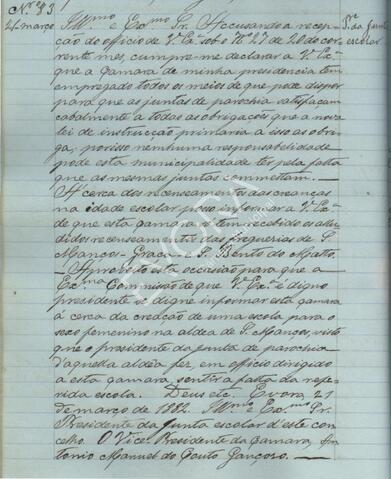 Nº 83
21 março
Pr. da junta
escolar
Illmo e Exmo Sr. Accusando a recep-
ção do officio de V. Exª sob o Nº 27 de 20 do cor-
rente mes, cumpre-me declarar a V. Exª
que a Camara de minha presidencia tem
empregado todos os meios de que pode dispor
para que as juntas de parochia satisfaçam
cabalmente a todas as obrigações que a nova
lei de instrucção primaria a isso as obri-
ga, por isso nenhuma responsabilidade
pode esta municipalidade ter pela falta
que as mesmas juntas commettam.
Á cerca dos recenseamentos das creanças
na idade escolar posso informar a V. Exª
de que esta camara só tem recebido os allu-
didos recenseamentos das freguesias de S.
Manços - Graça - S. Bento do Matto.
Aproveito esta occasião para que a
Exma Commissão de que V. Exª é digno
presidente se digne informar esta camara
á cerca da creação de uma escola para o
sexo femenino na aldea de S. Manços, visto
que o presidente da junta de parochia
d'aquella aldêa fez, em officio dirigido
a esta camara, sentir a falta da refe-
rida escola. Deus etc. Evora, 21
de março de 1882. Illmo e Exmo Sr.
Presidente da junta escolar d'este con-
celho. O Vice Presidente da Camara, An-
tonio Manuel do Couto Gançoso.
EVORA